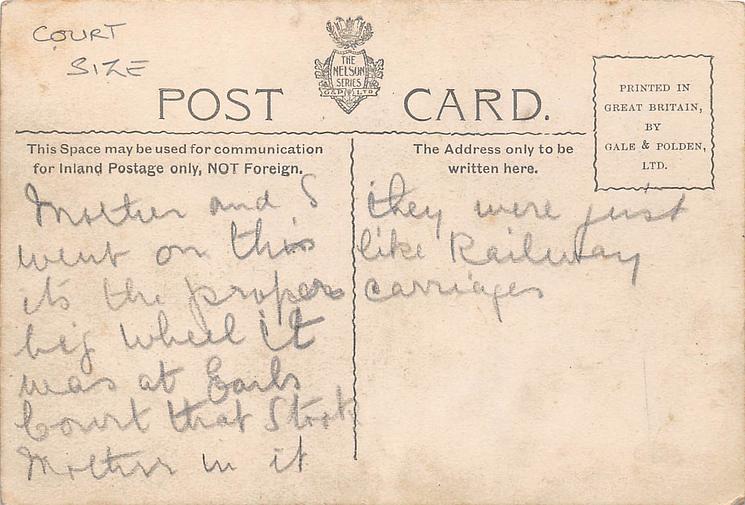 COURT
SIZE
THE
NELSON
SERIES
G & P LTD
POST CARD.
PRINTED IN
GREAT BRITAIN,
BY
GALE & POLDEN,
LTD.
This Space may be used for communication
for Inland Postage only, NOT Foreign.
The Address only to be
written here.
Mother and I
went on this
its the proper
big wheel it
was at Earls
Court that Stook
Mother in it
they were just
like Railway
carriages